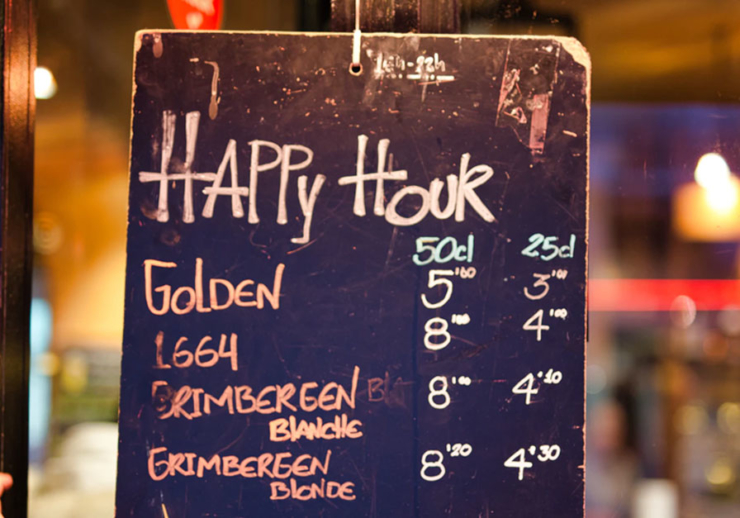 16h-22h
Happy Hour
50cl 25cl
Golden 5'00 3'00
1664 8'00 4'00
Grimbergen 8'00 4'10
Blanche
Grimbergen 8'20 4'30
Blonde